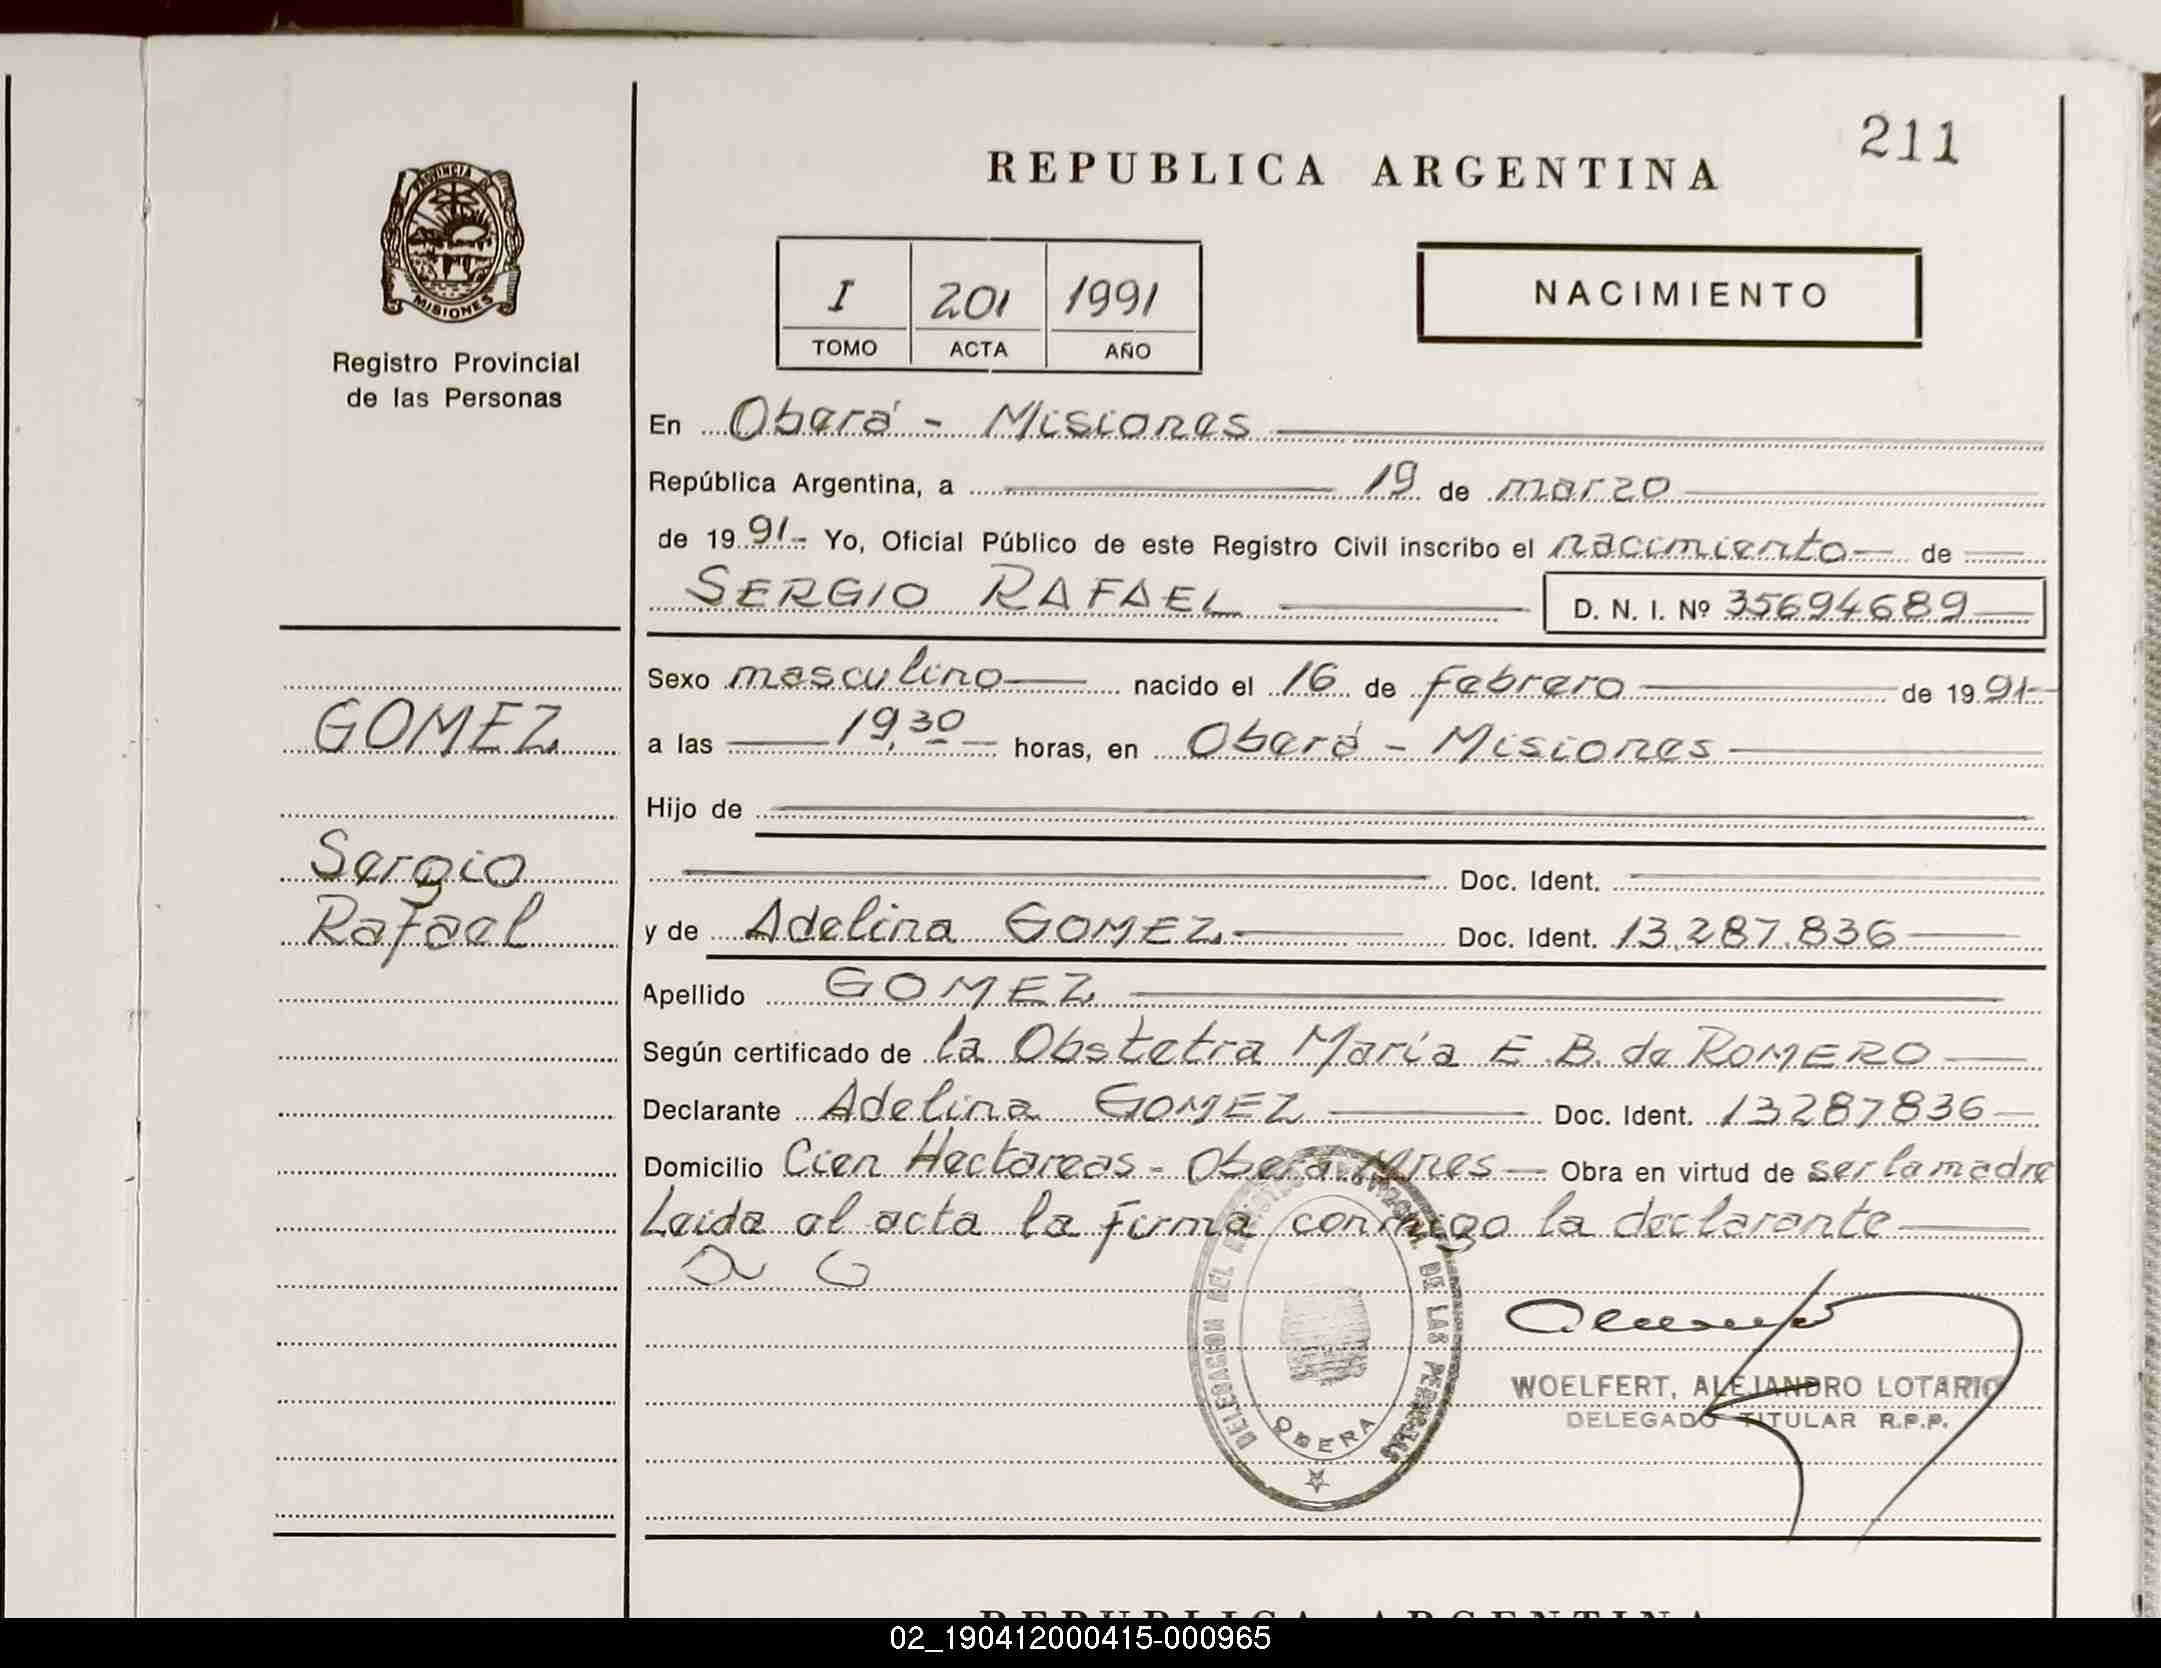 211
REPUBLICA ARGENTINA
PROVINCIA DE
MISIONES
Registro Provincial
de las Personas
I 201 1991
TOMO ACTA AÑO
NACIMIENTO
En Oberá - Misiones
República Argentina, a 19 de marzo
de 1991- Yo, Oficial Público de este Registro Civil inscribo el nacimiento de
SERGIO RAFAEL D. N. I. Nº 35694689
Sexo masculino nacido el 16 de febrero de 1991-
GOMEZ
a las 19,30 horas, en Oberá - Misiones
Hijo de
Sergio
Doc. Ident.
Rafael
y de Adelina GOMEZ Doc. Ident. 13.287.836
Apellido GOMEZ
Según certificado de la Obstetra María E. B. de ROMERO
Declarante Adelina GOMEZ Doc. Ident. 13287836
Domicilio Cien Hectareas - Oberá Mnes Obra en virtud de ser la madre
Leida al acta la firma conmigo la declarante
DELEGACION DEL REGISTRO PROVINCIAL DE LAS PERSONAS
OBERA
WOELFERT, ALEJANDRO LOTARIO
DELEGADO TITULAR R.P.P.
REPUBLICA ARGENTINA
02_190412000415-000965